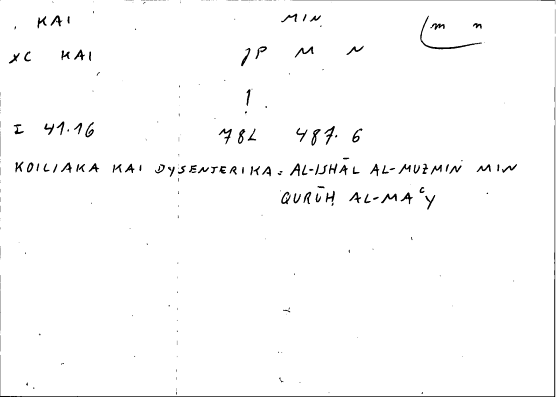 KAI MIN m n
XC KAI JP M N
!
I 41.16 78L 487.6
KOILIAKA KAI DYSENTERIKA: AL-ISHĀL AL-MUZMIN MIN
QURŪḤ AL-MAᶜY